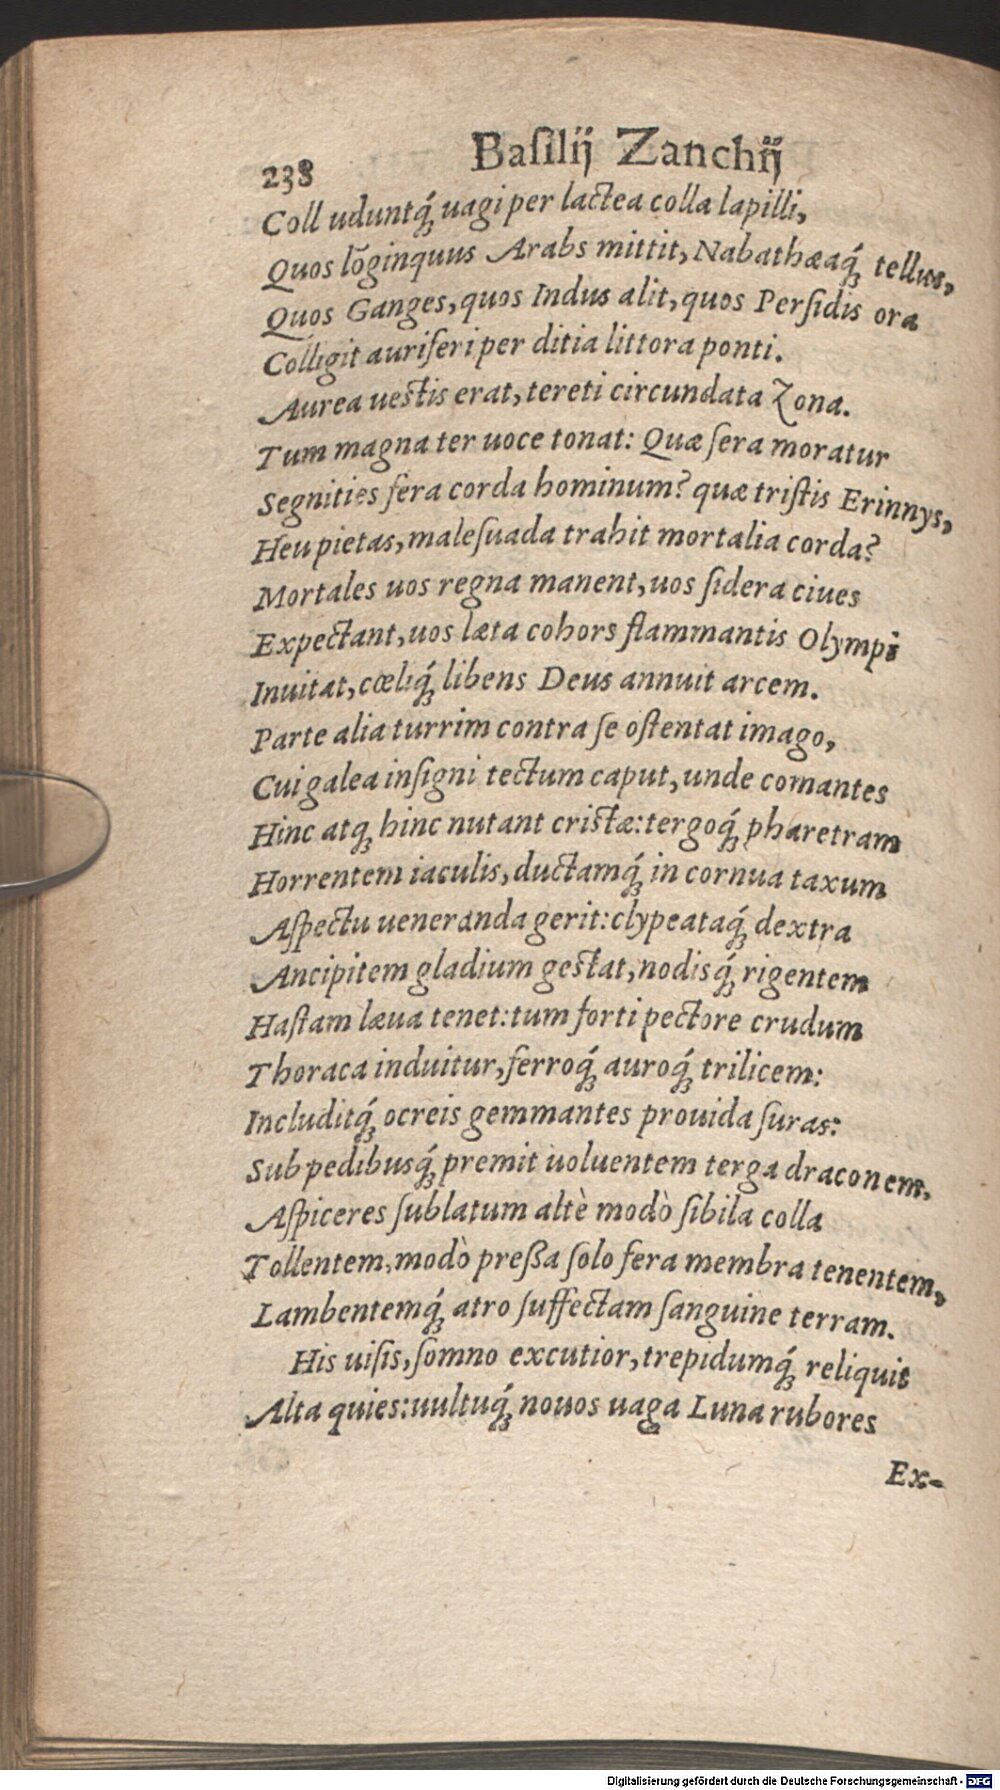 238 Baſilij Zanchij
Coll uduntq́; uagi per lactea colla lapilli,
Quos lõginquus Arabs mittit, Nabathæaq́; tellus,
Quos Ganges, quos Indus alit, quos Perſidis ora
Colligit auriferi per ditia littora ponti.
Aurea ueſtis erat, tereti circundata Zona.
Tum magna ter uoce tonat: Quæ ſera moratur
Segnities fera corda hominum? quæ triſtis Erinnys,
Heu pietas, maleſuada trahit mortalia corda?
Mortales uos regna manent, uos ſidera ciues
Expectant, uos læta cohors flammantis Olympi
Inuitat, cœliq́; libens Deus annuit arcem.
Parte alia turrim contra ſe oſtentat imago,
Cui galea inſigni tectum caput, unde comantes
Hinc atq; hinc nutant criſtæ: tergoq́; pharetram
Horrentem iaculis, ductamq́; in cornua taxum
Aſpectu ueneranda gerit: clypeataq́; dextra
Ancipitem gladium geſtat, nodisq́; rigentem
Haſtam læua tenet: tum forti pectore crudum
Thoraca induitur, ferroq́; auroq́; trilicem:
Includitq́; ocreis gemmantes prouida ſuras:
Sub pedibusq́; premit uoluentem terga draconem.
Aſpiceres ſublatum altè modò ſibila colla
Tollentem, modò preßa ſolo fera membra tenentem,
Lambentemq́; atro ſuffectam ſanguine terram.
His uiſis, ſomno excutior, trepidumq́; reliquit
Alta quies: uultuq́; nouos uaga Luna rubores
Ex-
Digitalisierung gefördert durch die Deutsche Forschungsgemeinschaft - DFG